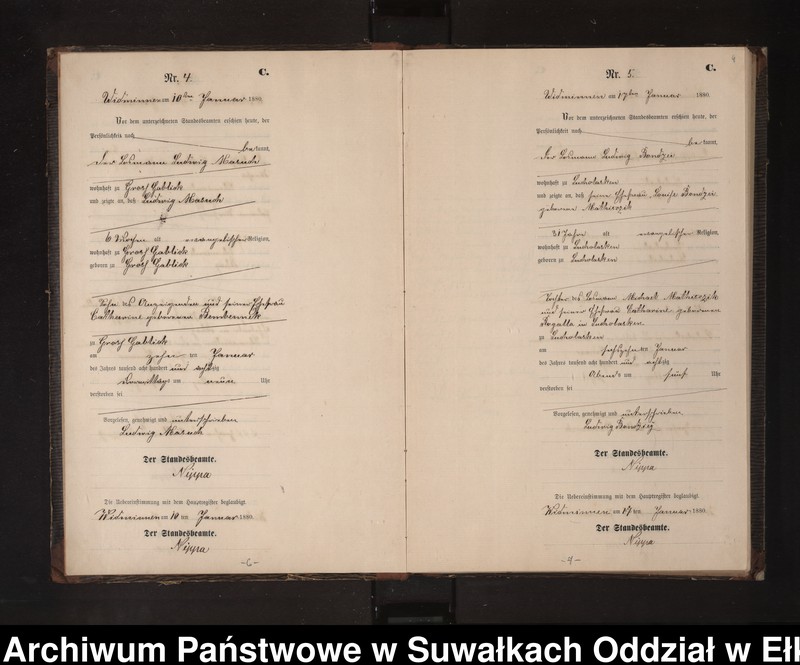 Nr. 4. C.
Widminnen am 10ten Januar 1880.
Vor dem unterzeichneten Standesbeamten erschien heute, der
Persönlichkeit nach
be kannt,
der Losmann Ludwig
wohnhaft zu Groß Gablick
und zeigte an, daß Ludwig
6 Wochen alt evangelischer Religion,
wohnhaft zu Groß Gablick
geboren zu Groß Gablick
Sohn des Anzeigenden und seiner Ehefrau
Catharine geborenen
zu Groß Gablick
am zehn ten Januar
des Jahres tausend acht hundert und achtzig
Vormittags um neun Uhr
verstorben sei
Vorgelesen, genehmigt und unterschrieben
Ludwig
Der Standesbeamte.
Nippa
Die Uebereinstimmung mit dem Hauptregister beglaubigt.
Widminnen am 10 ten Januar 1880.
Der Standesbeamte.
Nippa
-6-
Nr. 5. C.
Widminnen am 17ten Januar 1880.
Vor dem unterzeichneten Standesbeamten erschien heute, der
Persönlichkeit nach
be kannt,
der Losmann Ludwig Bondzio
wohnhaft zu
und zeigte an, daß seine Ehefrau Louise
geborene Matheszik
31 Jahre alt evangelischer Religion,
wohnhaft zu
geboren zu
Tochter des Losmann Michael Matheszik
und seiner Ehefrau Catharine geborenen
Rogalla in
zu
am ten Januar
des Jahres tausend acht hundert und achtzig
Abends um fünf Uhr
verstorben sei
Vorgelesen, genehmigt und unterschrieben
Ludwig
Der Standesbeamte.
Nippa
Die Uebereinstimmung mit dem Hauptregister beglaubigt.
Widminnen am 17 ten Januar 1880.
Der Standesbeamte.
Nippa
Archiwum Państwowe w Suwałkach Oddział w Eł